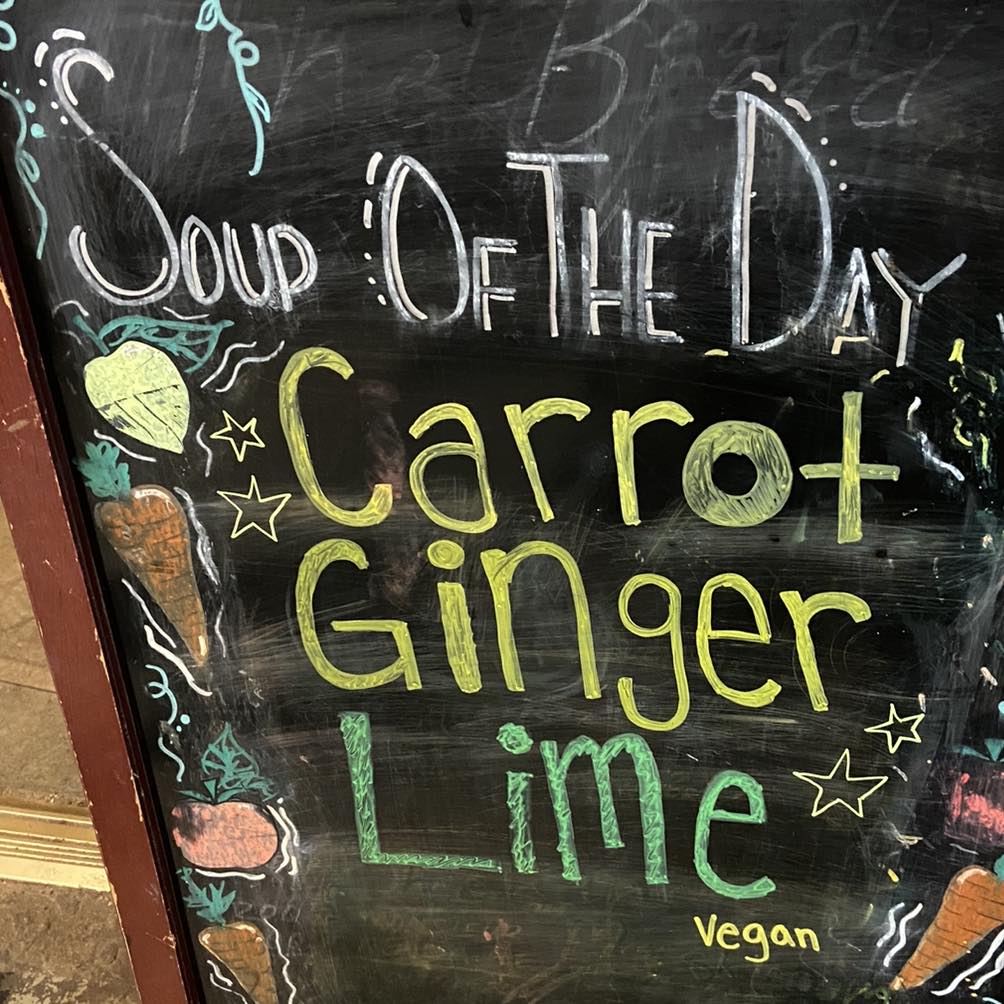 Soup Of The Day
Carrot
Ginger
Lime
Vegan